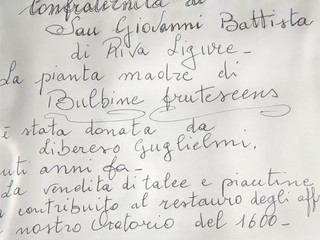 Confraternita di
San Giovanni Battista
di Riva Ligure -
La pianta madre di
Bulbine frutescens
è stata donata da
Libereso Guglielmi,
anni fa -
La vendita di talee e piantine
contribuito al restauro degli aff
nostro Oratorio del 1600 -